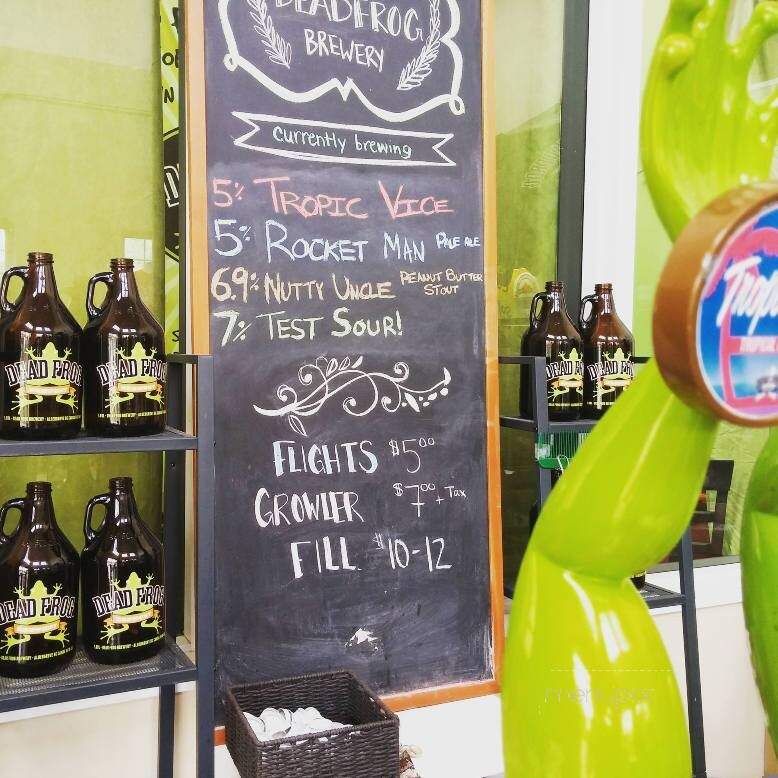 DEAD FROG
BREWERY
currently brewing
5% TROPIC VICE
5% ROCKET MAN PALE ALE
6.9% NUTTY UNCLE PEANUT BUTTER
STOUT
7% TEST SOUR!
FLIGHTS $5.00
GROWLER $7.00 + Tax
FILL $10-12
DEAD FROG
DEAD FROG
DEAD FROG
DEAD FROG
DEAD FROG
DEAD FROG
Tropic
TROPICAL